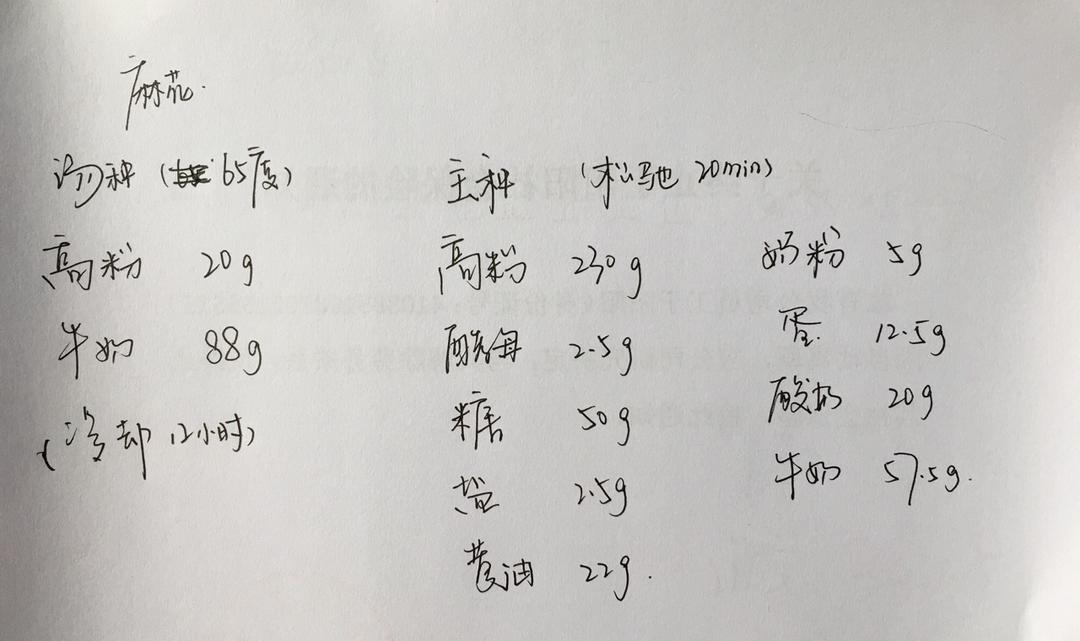 麻花.
汤种 (65度)
高粉 20g
牛奶 88g
(冷却12小时)
主种 (松驰 20min)
高粉 230g
酵母 2.5g
糖 50g
盐 2.5g
黄油 22g.
奶粉 5g
蛋 12.5g
酸奶 20g
牛奶 57.5g.